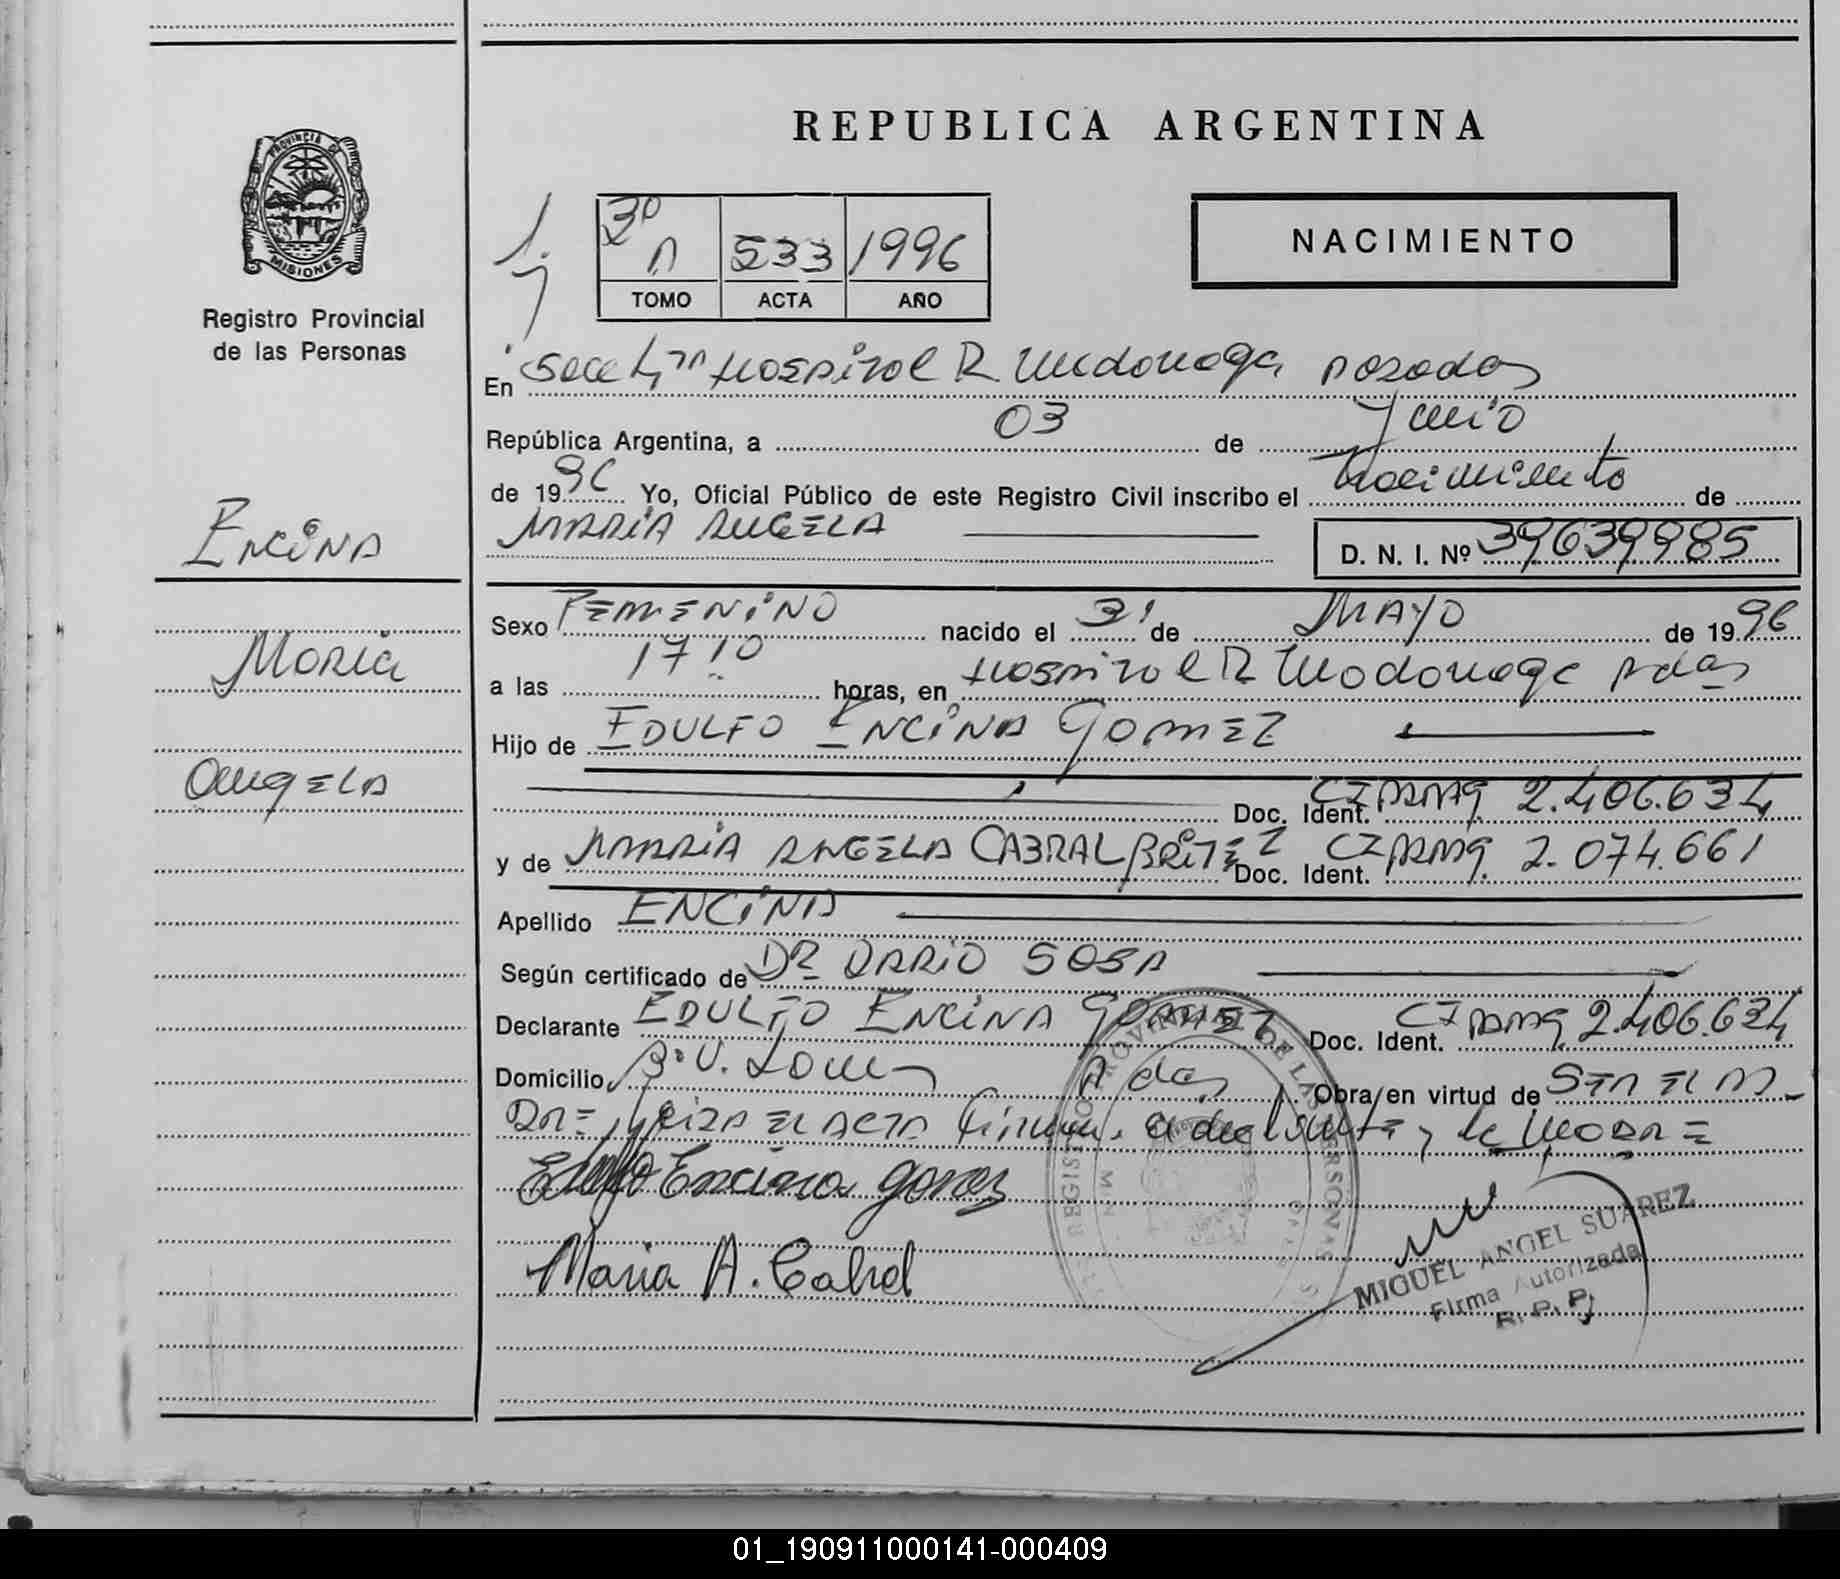 PROVINCIA DE
MISIONES
Registro Provincial
de las Personas
ENCINA
MARIA
ANGELA
REPUBLICA ARGENTINA
3º A 533 1996
TOMO ACTA AÑO
NACIMIENTO
En Secc 1ra Hospital R Madariaga Posadas
República Argentina, a 03 de Junio
de 1996 Yo, Oficial Público de este Registro Civil inscribo el Nacimiento de
MARIA ANGELA
D. N. I. Nº 39639985
Sexo FEMENINO nacido el 31 de MAYO de 1996
a las 17 10 horas, en Hospital R Madariaga Pdas
Hijo de EDULFO ENCINA GOMEZ
Doc. Ident. CI PARAG. 2.406.634
y de MARIA ANGELA CABRAL BRITEZ Doc. Ident. CI PARAG. 2.074.661
Apellido ENCINA
Según certificado de DR DARIO SOSA
Declarante EDULFO ENCINA GOMEZ Doc. Ident. CI PARAG 2.406.634
Domicilio Bº V. Pdas Obra en virtud de SER EL PA-
DRE EL ACTA Firman el declarante y la MADRE
Edulfo Encina gomez
Maria A. Cabral
REGISTRO PROVINCIAL DE LAS PERSONAS
MIGUEL ANGEL SUAREZ
Firma Autorizada
R. P. P.
01_190911000141-000409